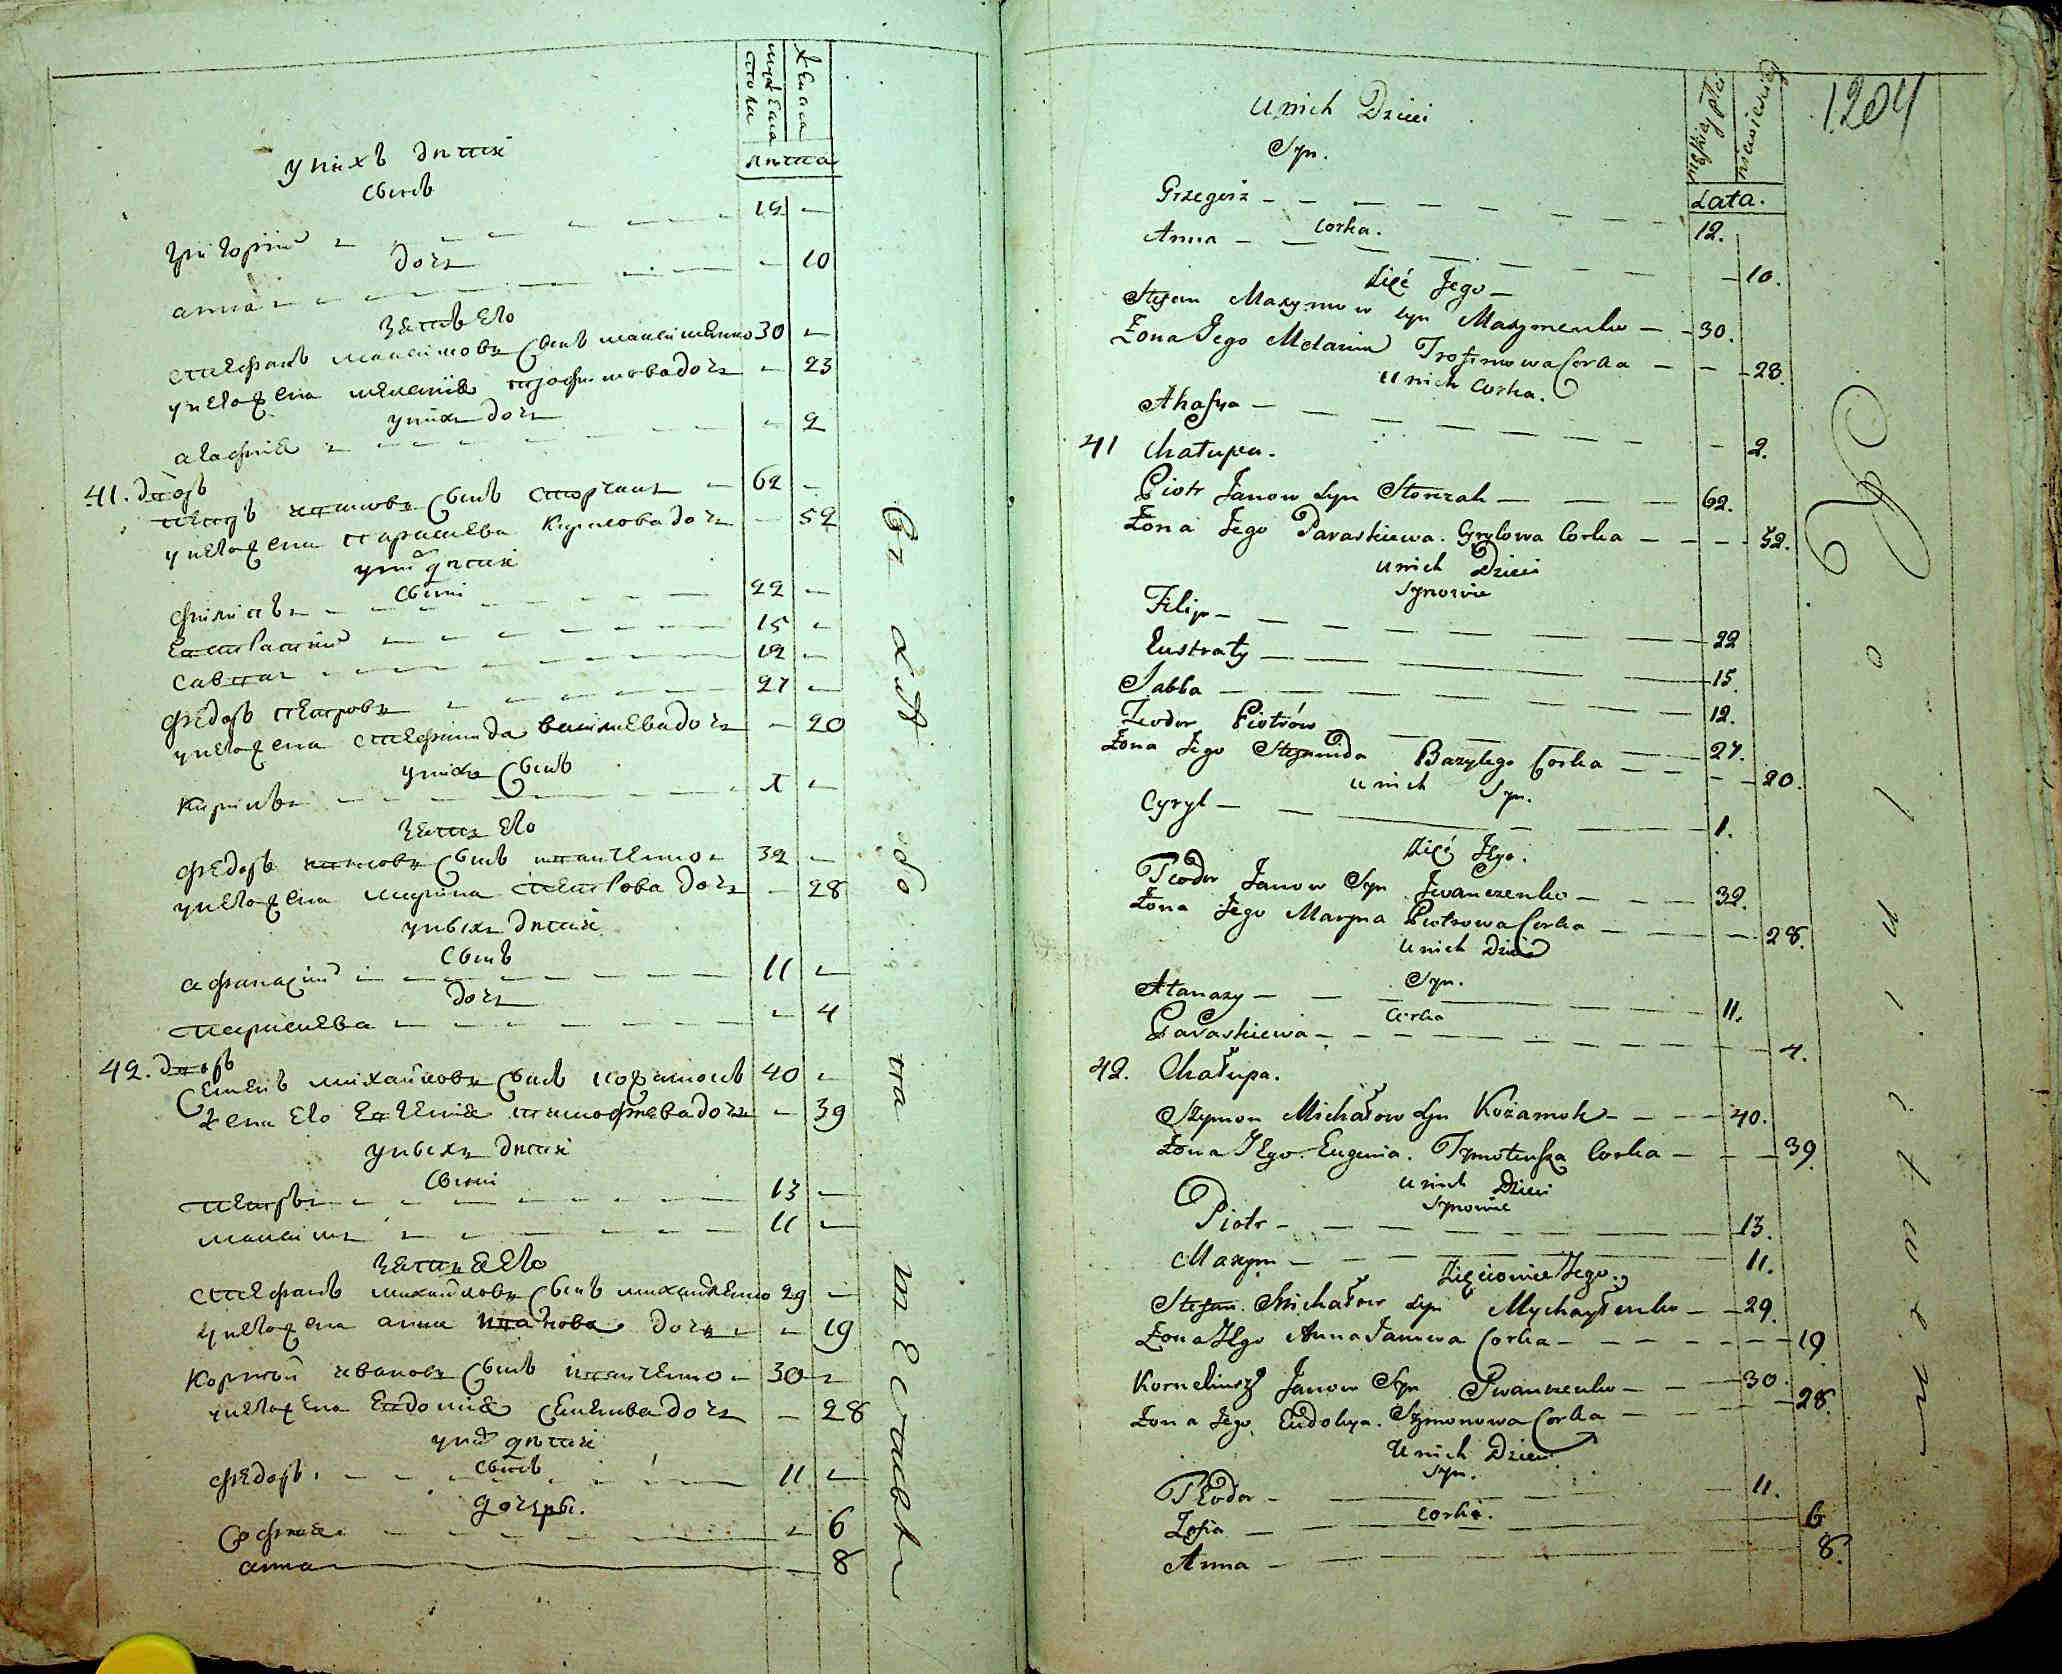 мужеска
пола
женска
лѣта
у нихъ дѣти
сынъ
григорий 12
дочь
анна 10
зять его
стефанъ максимовъ сынъ максименко 30
у него жена меланія трофимова дочь 23
у нихъ дочь
агафия 2
41. дворъ
петръ ивановъ сынъ сторчакъ 62
у него жена параскева кирилова дочь 52
у них дѣти
сыни
филипъ 22
евстратий 15
савва 12
федоръ петровъ 27
у него жена стефанида василева дочь 20
у нихъ сынъ
кирилъ 1
зять его
федоръ ивановъ сынъ иванченко 32
у него жена марина петрова дочь 28
у нихъ дѣти
сынъ
афанасий 11
дочь
параскева 4
42. дворъ
семенъ михайловъ сынъ 40
жена его евгения тимофеева дочь 39
у нихъ дѣти
сыни
петръ 13
максимъ 11
зятья его
стефанъ михайловъ сынъ михайленко 29
у него жена анна иванова дочь 19
корнѣй ивановъ сынъ иванченко 30
у него жена евдокия семенова дочь 28
у них дѣти
сынъ
федоръ 11
дочери.
софия 6
анна 8
до
на
1204
męskiey płci
niewieskiey
Lata.
u nich Dzieci
Syn.
Grzegorz 12.
Corka.
Anna 10.
Zięć Jego
Stefan Maxymow syn Maxymenko 30.
Żona Jego Melania Trofimowa Corka 23.
u nich Corka.
Ahafya 2.
41 Chałupa.
Piotr Janow Syn Storczak 62.
Żona Jego Paraskiewa. Cyrylowa Corka 52.
u nich Dzieci
Synowie
Filip 22
Eustraty 15.
Sabba 12.
Teodor Piotrów 27.
Żona Jego Stefanida Bazylego Corka 20.
u nich Syn.
Cyryl 1.
Zięć Jego.
Teodor Janow Syn Iwanczenko 32.
Żona Jego Maryna Piotrowa Corka 28.
u nich Dzieci
Syn.
Atanazy 11.
Corka
Paraskiewa 4.
42. Chałupa.
Szymon Michałow Syn Kożamok 40.
Żona Jego Eugenia. Tymoteusza Corka 39.
u nich Dzieci
Synowie
Piotr 13.
Maxym 11.
Zięciowie Jego.
Stefan Michałow Syn Mychayłenko 29.
Żona Jego Anna Janowa Corka 19
Korneliusz Janow Syn Iwanczenko 30.
Żona Jego Eudokya. Szymonowa Corka 28.
U nich Dzieci
Syn.
Teodor 11.
Corki.
Zofia 6
Anna 8.